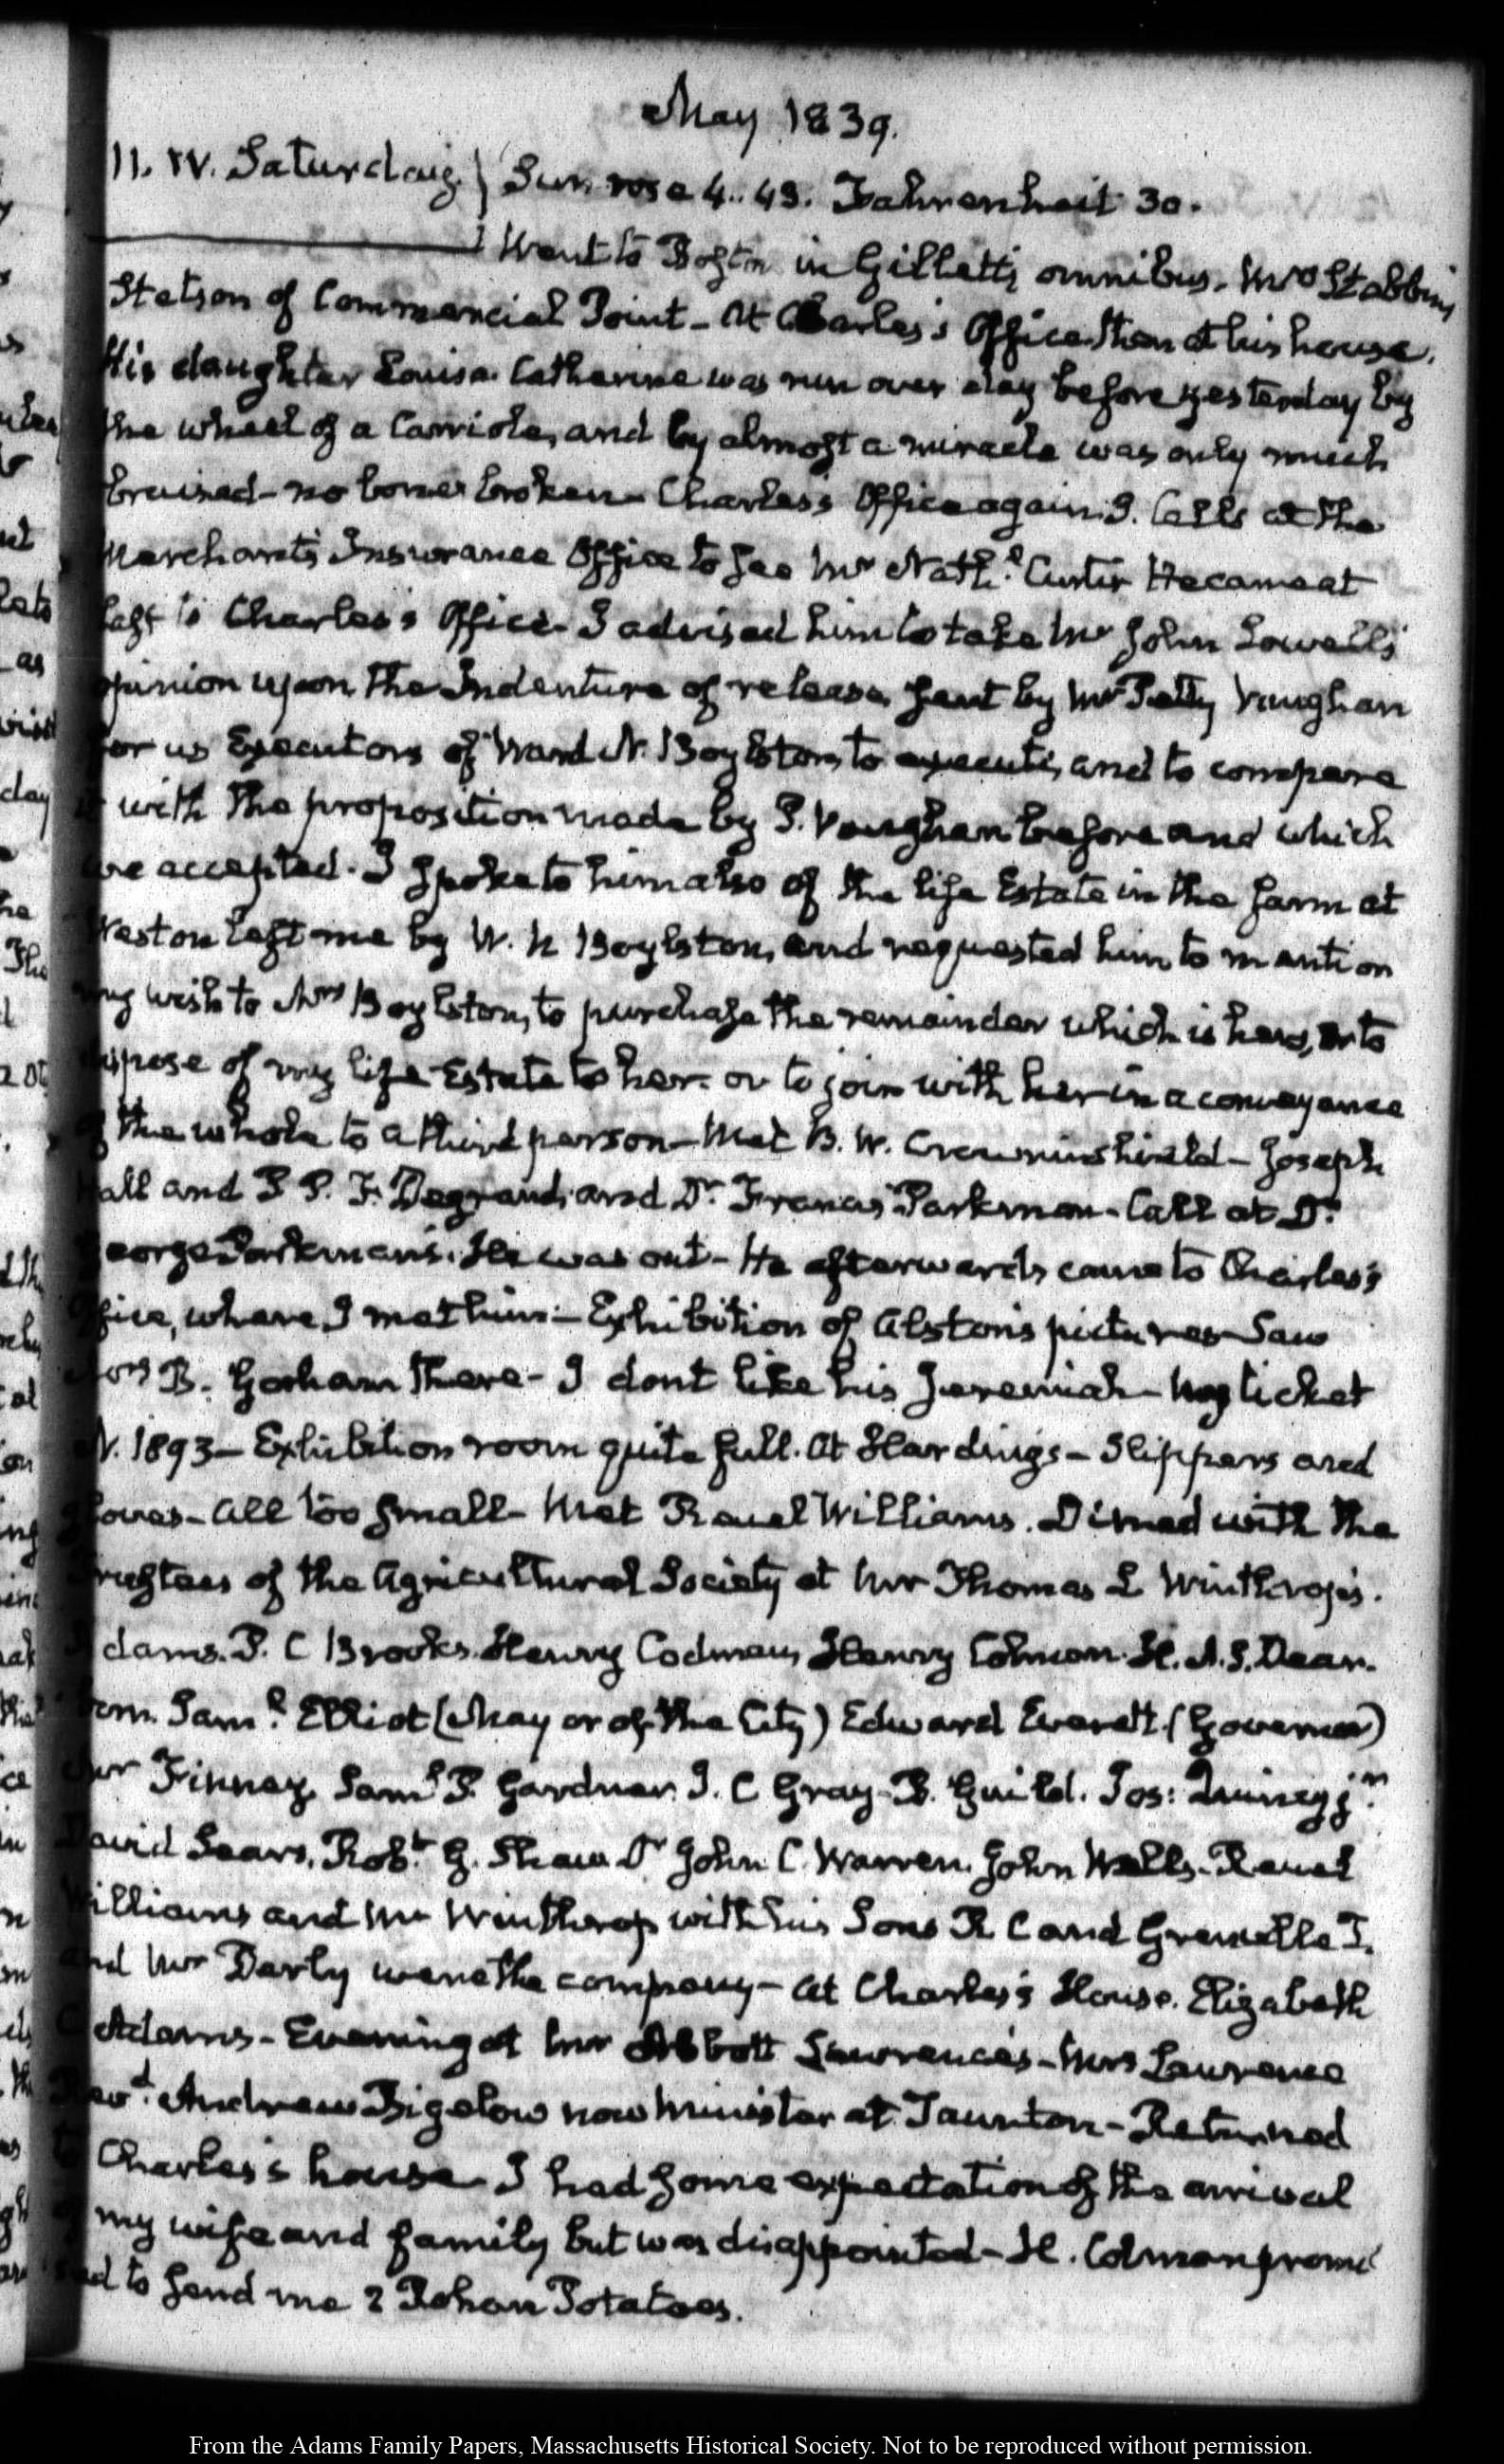 May 1839.
11. IV. Saturday. Sun rose 4..49. Fahrenheit 30.
Went to Boston in Gillett's omnibus. Mrs Stebbins
Stetson of Commercial Point- At Charles's Office then at his house.
His daughter Louisa Catherine was run over day before yesterday by
the wheel of a Carriole, and by almost a miracle was only much
bruised- no bones broken- Charles's Office again. Calls at the
Merchants Insurance Office to see Mr Nathl. Curtis He came at
last to Charles's Office- I advised him to take Mr John Lowell's
opinion upon the Indenture of release, sent by Mr Petty Vaughan
for us Executors of Ward N. Boylston, to execute, and to compare
it with the proposition made by P. Vaughan before and which
we accepted. I spoke to him also of the life Estate in the farm at
Weston left me by W. N Boylston, and requested him to mention
my wish to Mrs Boylston, to purchase the remainder which is hers, or to
dispose of my life Estate to her. or to join with her in a conveyance
of the whole to a third person- Met B. W. Crowninshield- Joseph
Hall and P P. F. Degrand, and Dr. Francis Parkman- Call at Dr.
George Parkman's. He was out- He afterwards came to Charles's
Office, where I met him- Exhibition of Alston's pictures- Saw
Mrs B. Gorham there- I dont like his Jeremiah- My ticket
N. 1893- Exhibition room quite full. At Hardings- Slippers and
gloves- All too small- Met Reuel Williams. Dined with the
Trustees of the Agricultural Society at Mr Thomas L Winthrop's.
Adams. P. C Brooks. Henry Codman, Henry Colman. H. A. S. Dear-
born. Saml. Elliot (Mayor of the City) Edward Everett. (Governor)
Mr Finney, Saml P. Gardner. J. C Gray- B. Guild. Jos: Quincy jr.
David Sears, Robt. G. Shaw. Dr John C. Warren. John Wells- Reuel
Williams and Mr Winthrop with his Sons R C and Grenville T.
and Mr Darly were the company- At Charles's House. Elizabeth
C Adams- Evening at Mr Abbott Lawrence's- Mrs Lawrence
Revd. Andrew Bigelow now Minister at Taunton- Returned
to Charles's house- I had some expectation of the arrival
of my wife and family but was disappointed- H. Colman promi
sed to send me 2 Rohan Potatoes.
From the Adams Family Papers, Massachusetts Historical Society. Not to be reproduced without permission.